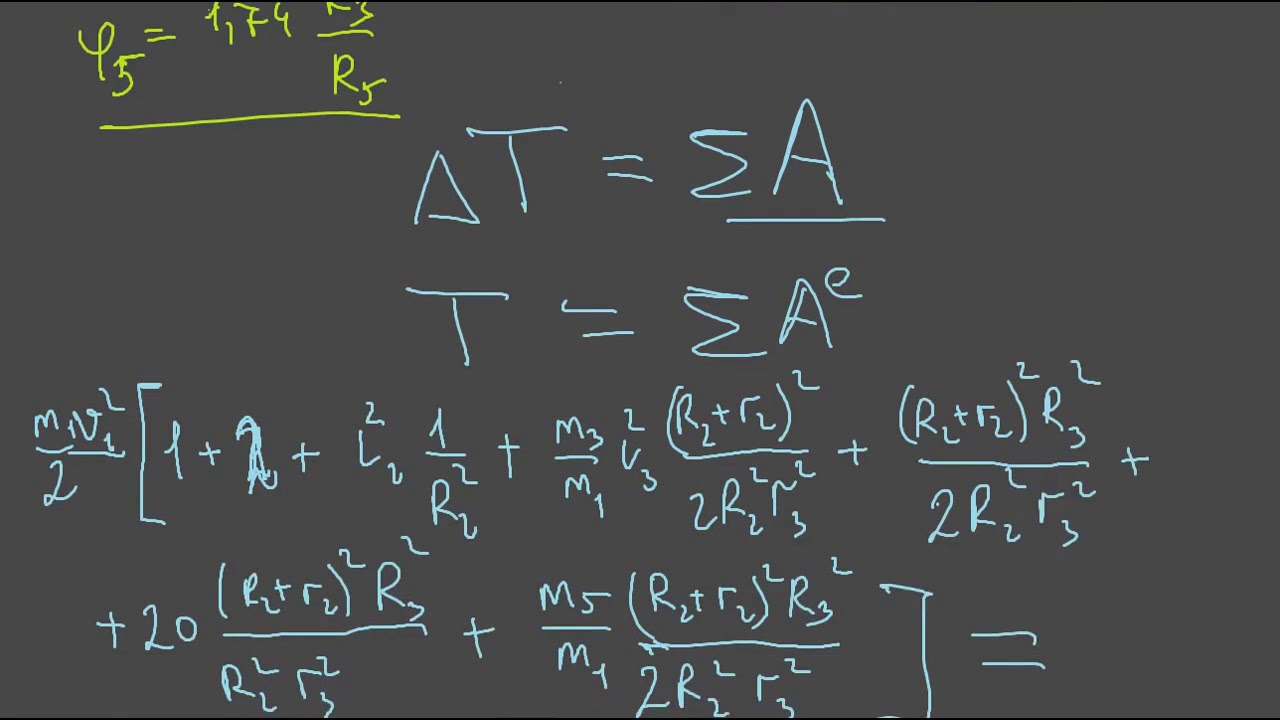 φ₅ = 1,74 r₃/R₅
ΔT = ΣA
T = ΣAᵉ
m₁v₁²/2 [1 + + i₂² 1/R₂² + m₃/m₁ i₃² (R₂+r₂)²/2R₂²r₃² + (R₂+r₂)²R₃²/2R₂²r₃² +
+ 20 (R₂+r₂)²R₃²/R₂²r₃² + m₅/m₁ (R₂+r₂)²R₃²/2R₂²r₃² ] =